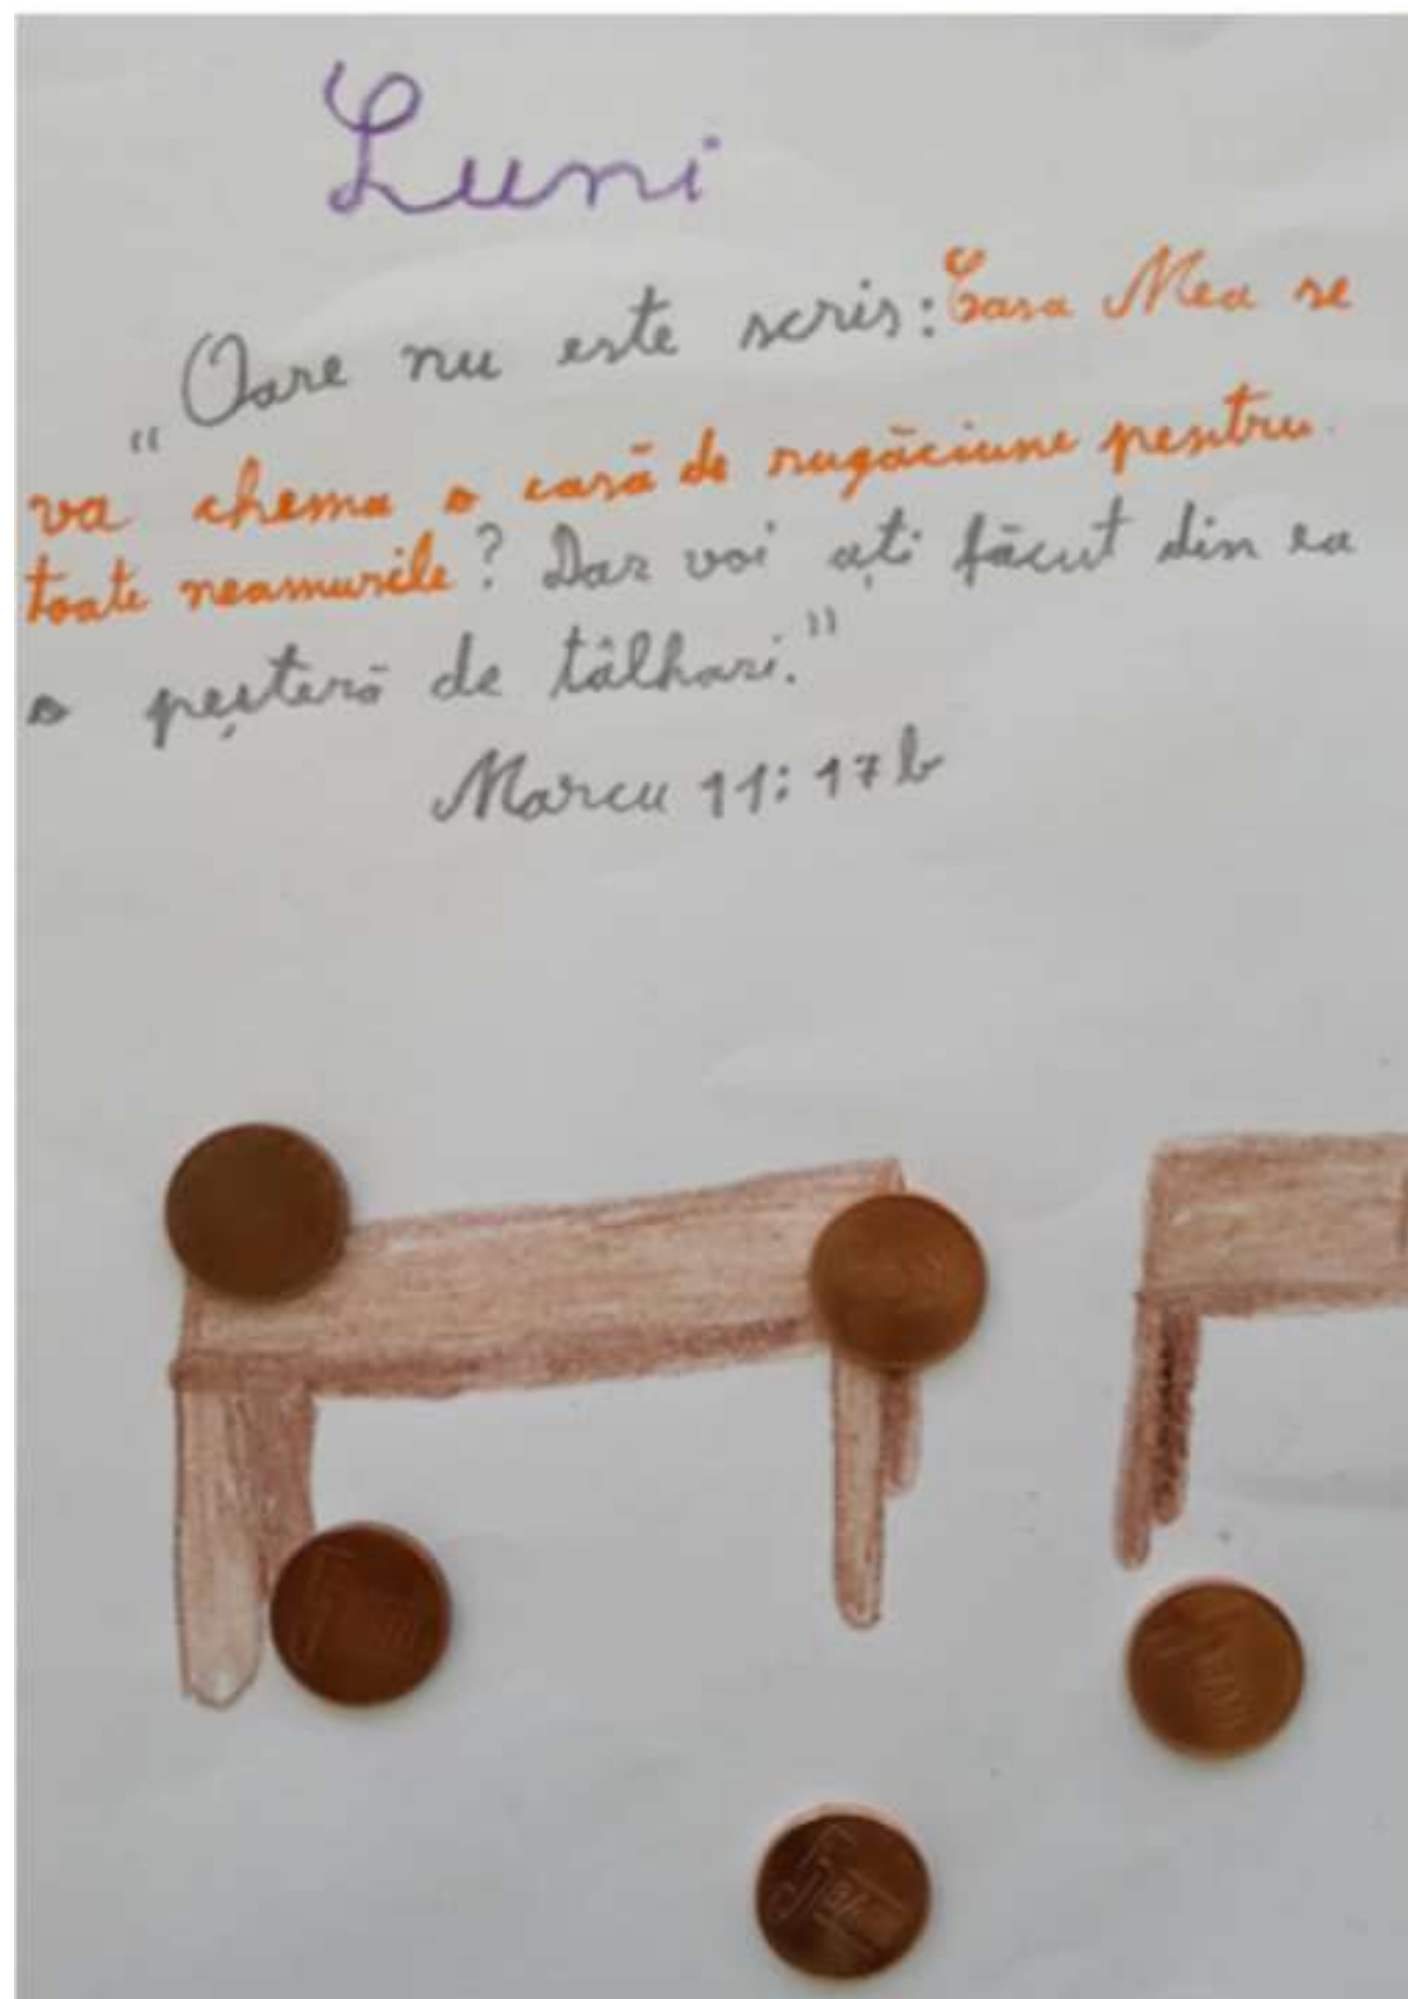 Luni
"Oare nu este scris: Casa Mea se
va chema o casă de rugăciune pentru
toate neamurile? Dar voi ați făcut din ea
o peșteră de tâlhari."
Marcu 11:17b